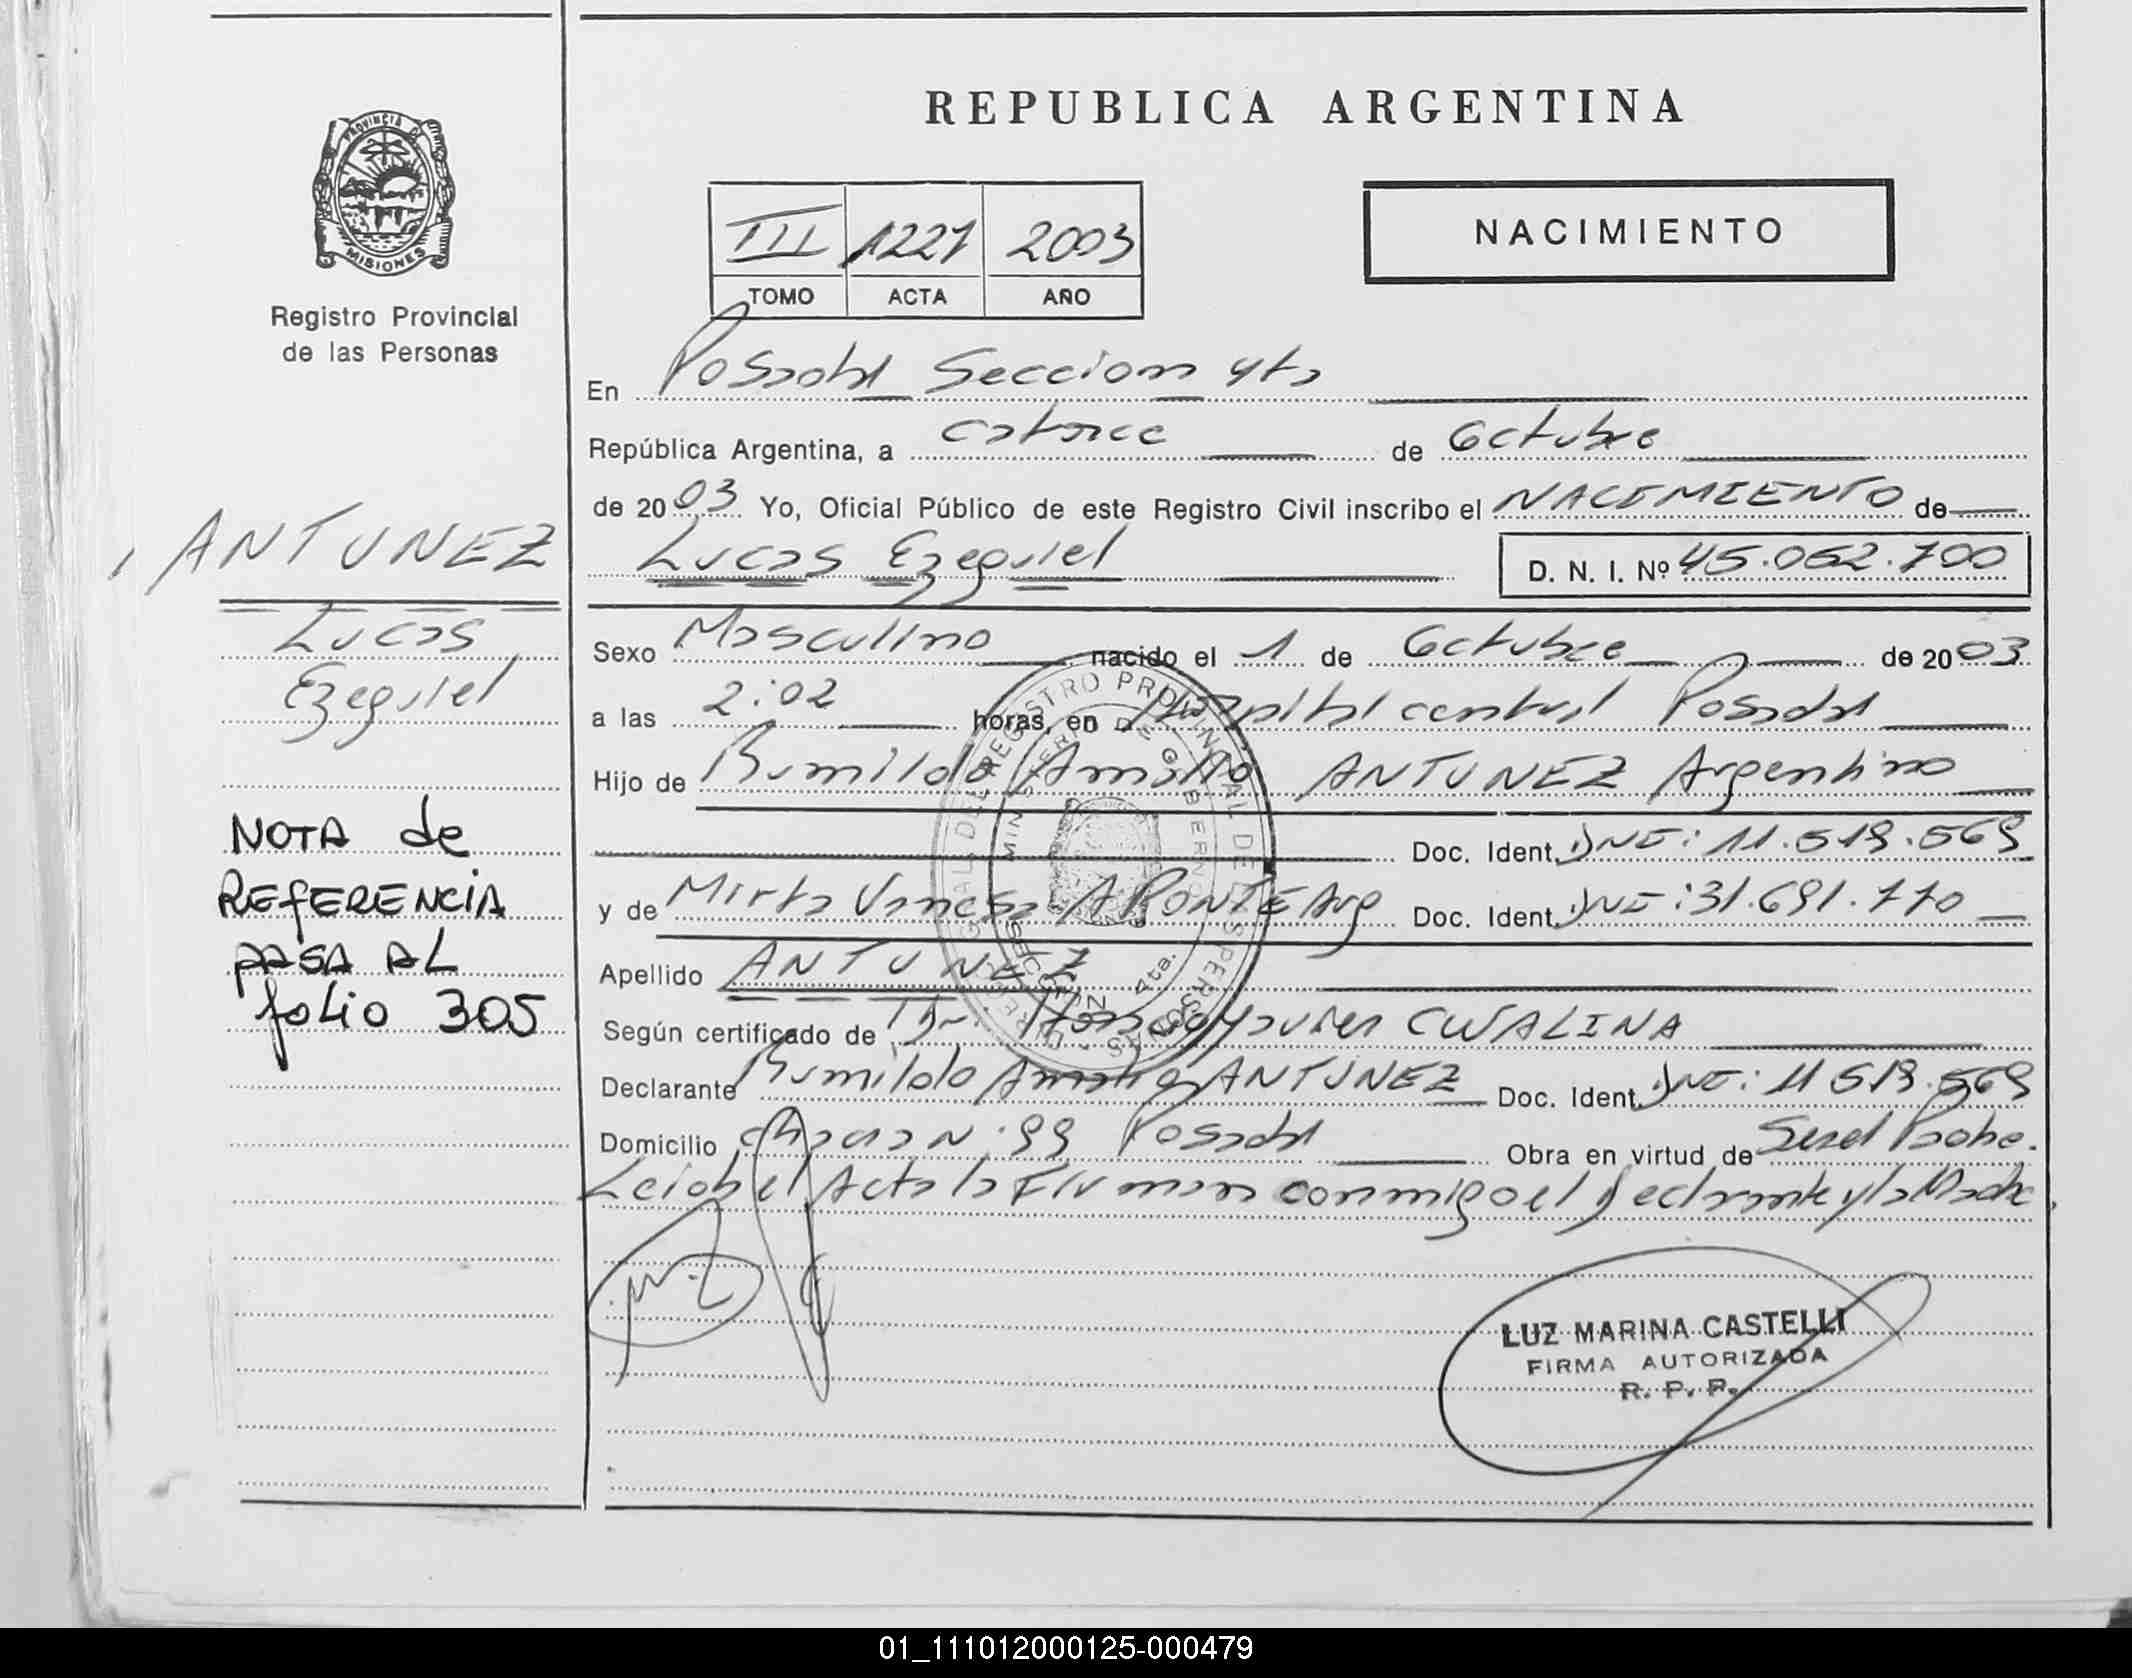 REPUBLICA ARGENTINA
PROVINCIA DE
MISIONES
Registro Provincial
de las Personas
III 1221 2003
TOMO ACTA AÑO
NACIMIENTO
En Posadas Seccion 4ta
República Argentina, a catorce de Octubre
de 2003 Yo, Oficial Público de este Registro Civil inscribo el NACIMIENTO de
Lucas Ezequiel D. N. I. Nº 45.052.700
ANTUNEZ
Lucas
Ezequiel
NOTA de
REFERENCIA
PASA AL
folio 305
Sexo Masculino nacido el 1 de Octubre de 2003
a las 2:02 horas, en Hospital central Posadas
Hijo de Rumildo ANTUNEZ Argentino
Doc. Ident. DNI: 11.519.569
y de Mirta Vanesa APONTE Arg Doc. Ident. DNI: 31.691.770
Apellido ANTUNEZ
Según certificado de Dr. Javier CWALINA
Declarante Rumildo ANTUNEZ Doc. Ident. DNI: 11519.569
Domicilio Chacra N. 99 Posadas Obra en virtud de Ser el Padre.
Leida el Acta la Firman conmigo el declarante y la Madre.
LUZ MARINA CASTELLI
FIRMA AUTORIZADA
R. P. P.
01_111012000125-000479